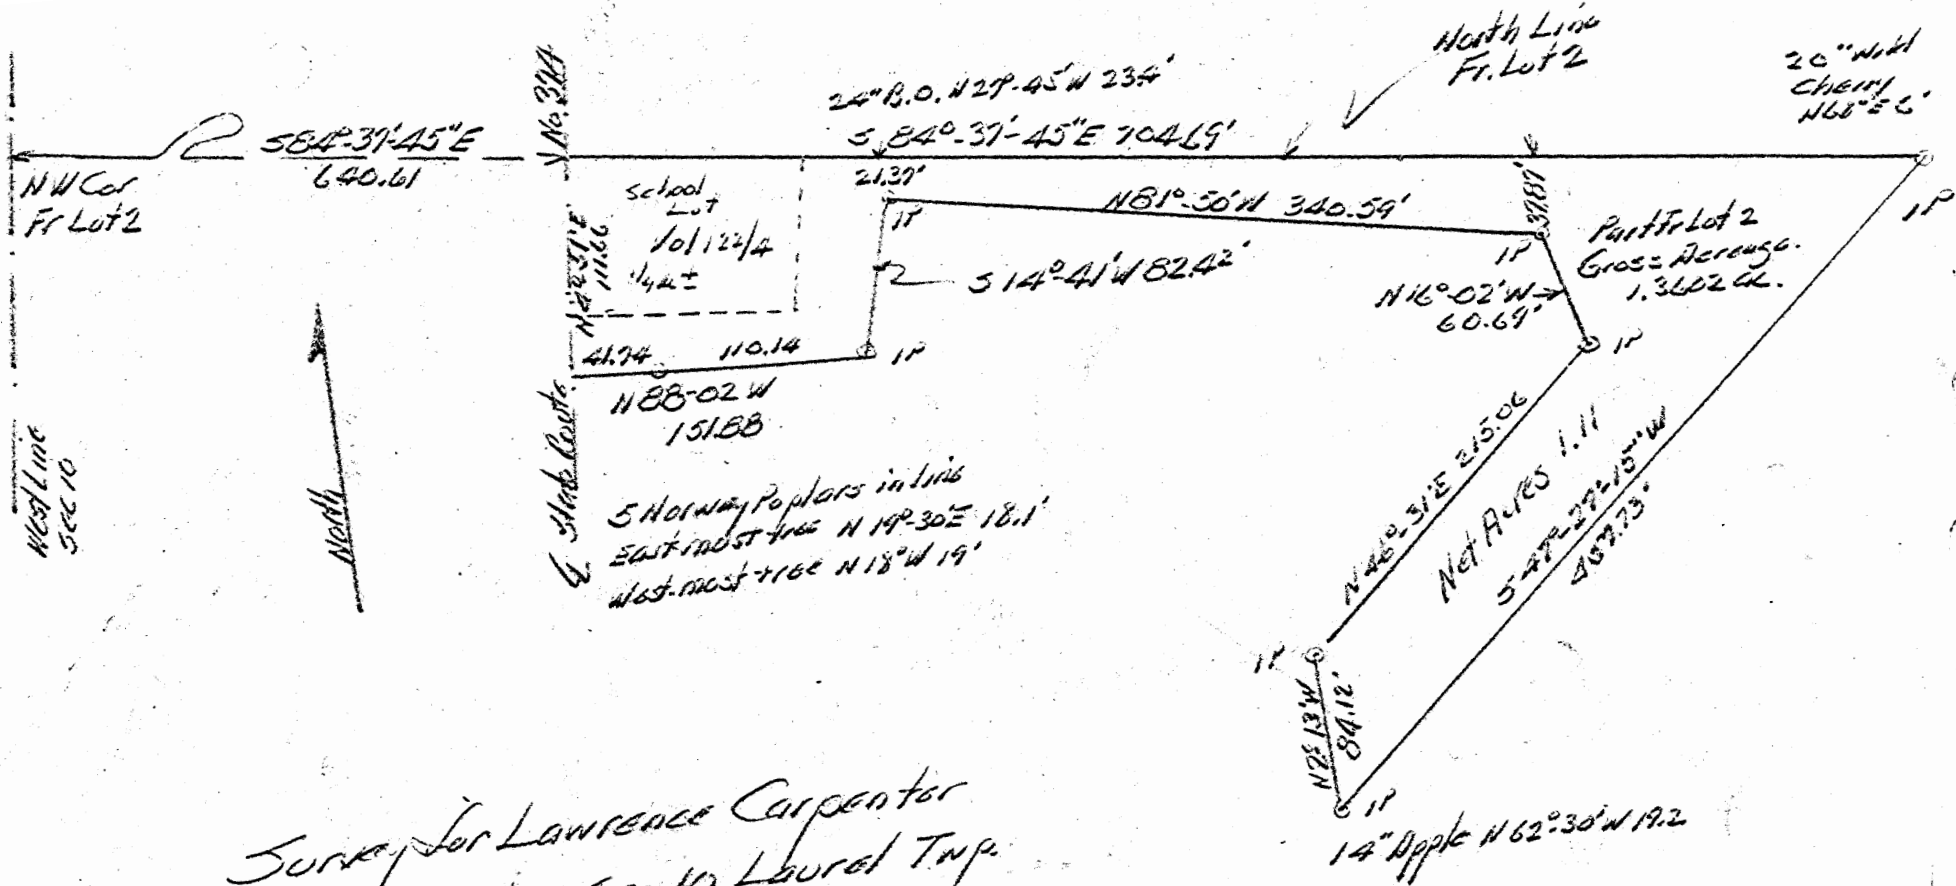 North Line
Fr. Lot 2
20" Wild
Cherry
N68°E 6'
24" B.O. N29°-45'W 23.4'
S 84°-37'-45"E 704.69'
No. 374
S84°-37'-45"E
640.61
NW Cor
Fr Lot 2
School
Lot
Vol 122/4
1/4 ac ±
111.66
21.37'
IP
N81°-50'W 340.59'
37.87'
IP
IP
Part Fr Lot 2
Gross Acreage.
1.3602 ac.
S 14°-41'W 82.42'
N16°-02'W
60.69'
IP
41.74 110.14
IP
N88-02 W
151.88
West Line
Sec 10
North
℄ State Route
5 Norway Poplars in line
East most tree N 19°-30'E 18.1'
West most tree N 18°W 19'
N46°-31'E 215.06
Net Acres 1.11
S 47°-27'-15"W
457.73'
IP
N2°13'W
84.12'
IP
14" Apple N 62°30'W 19.2
Survey for Lawrence Carpenter
Laurel Twp.